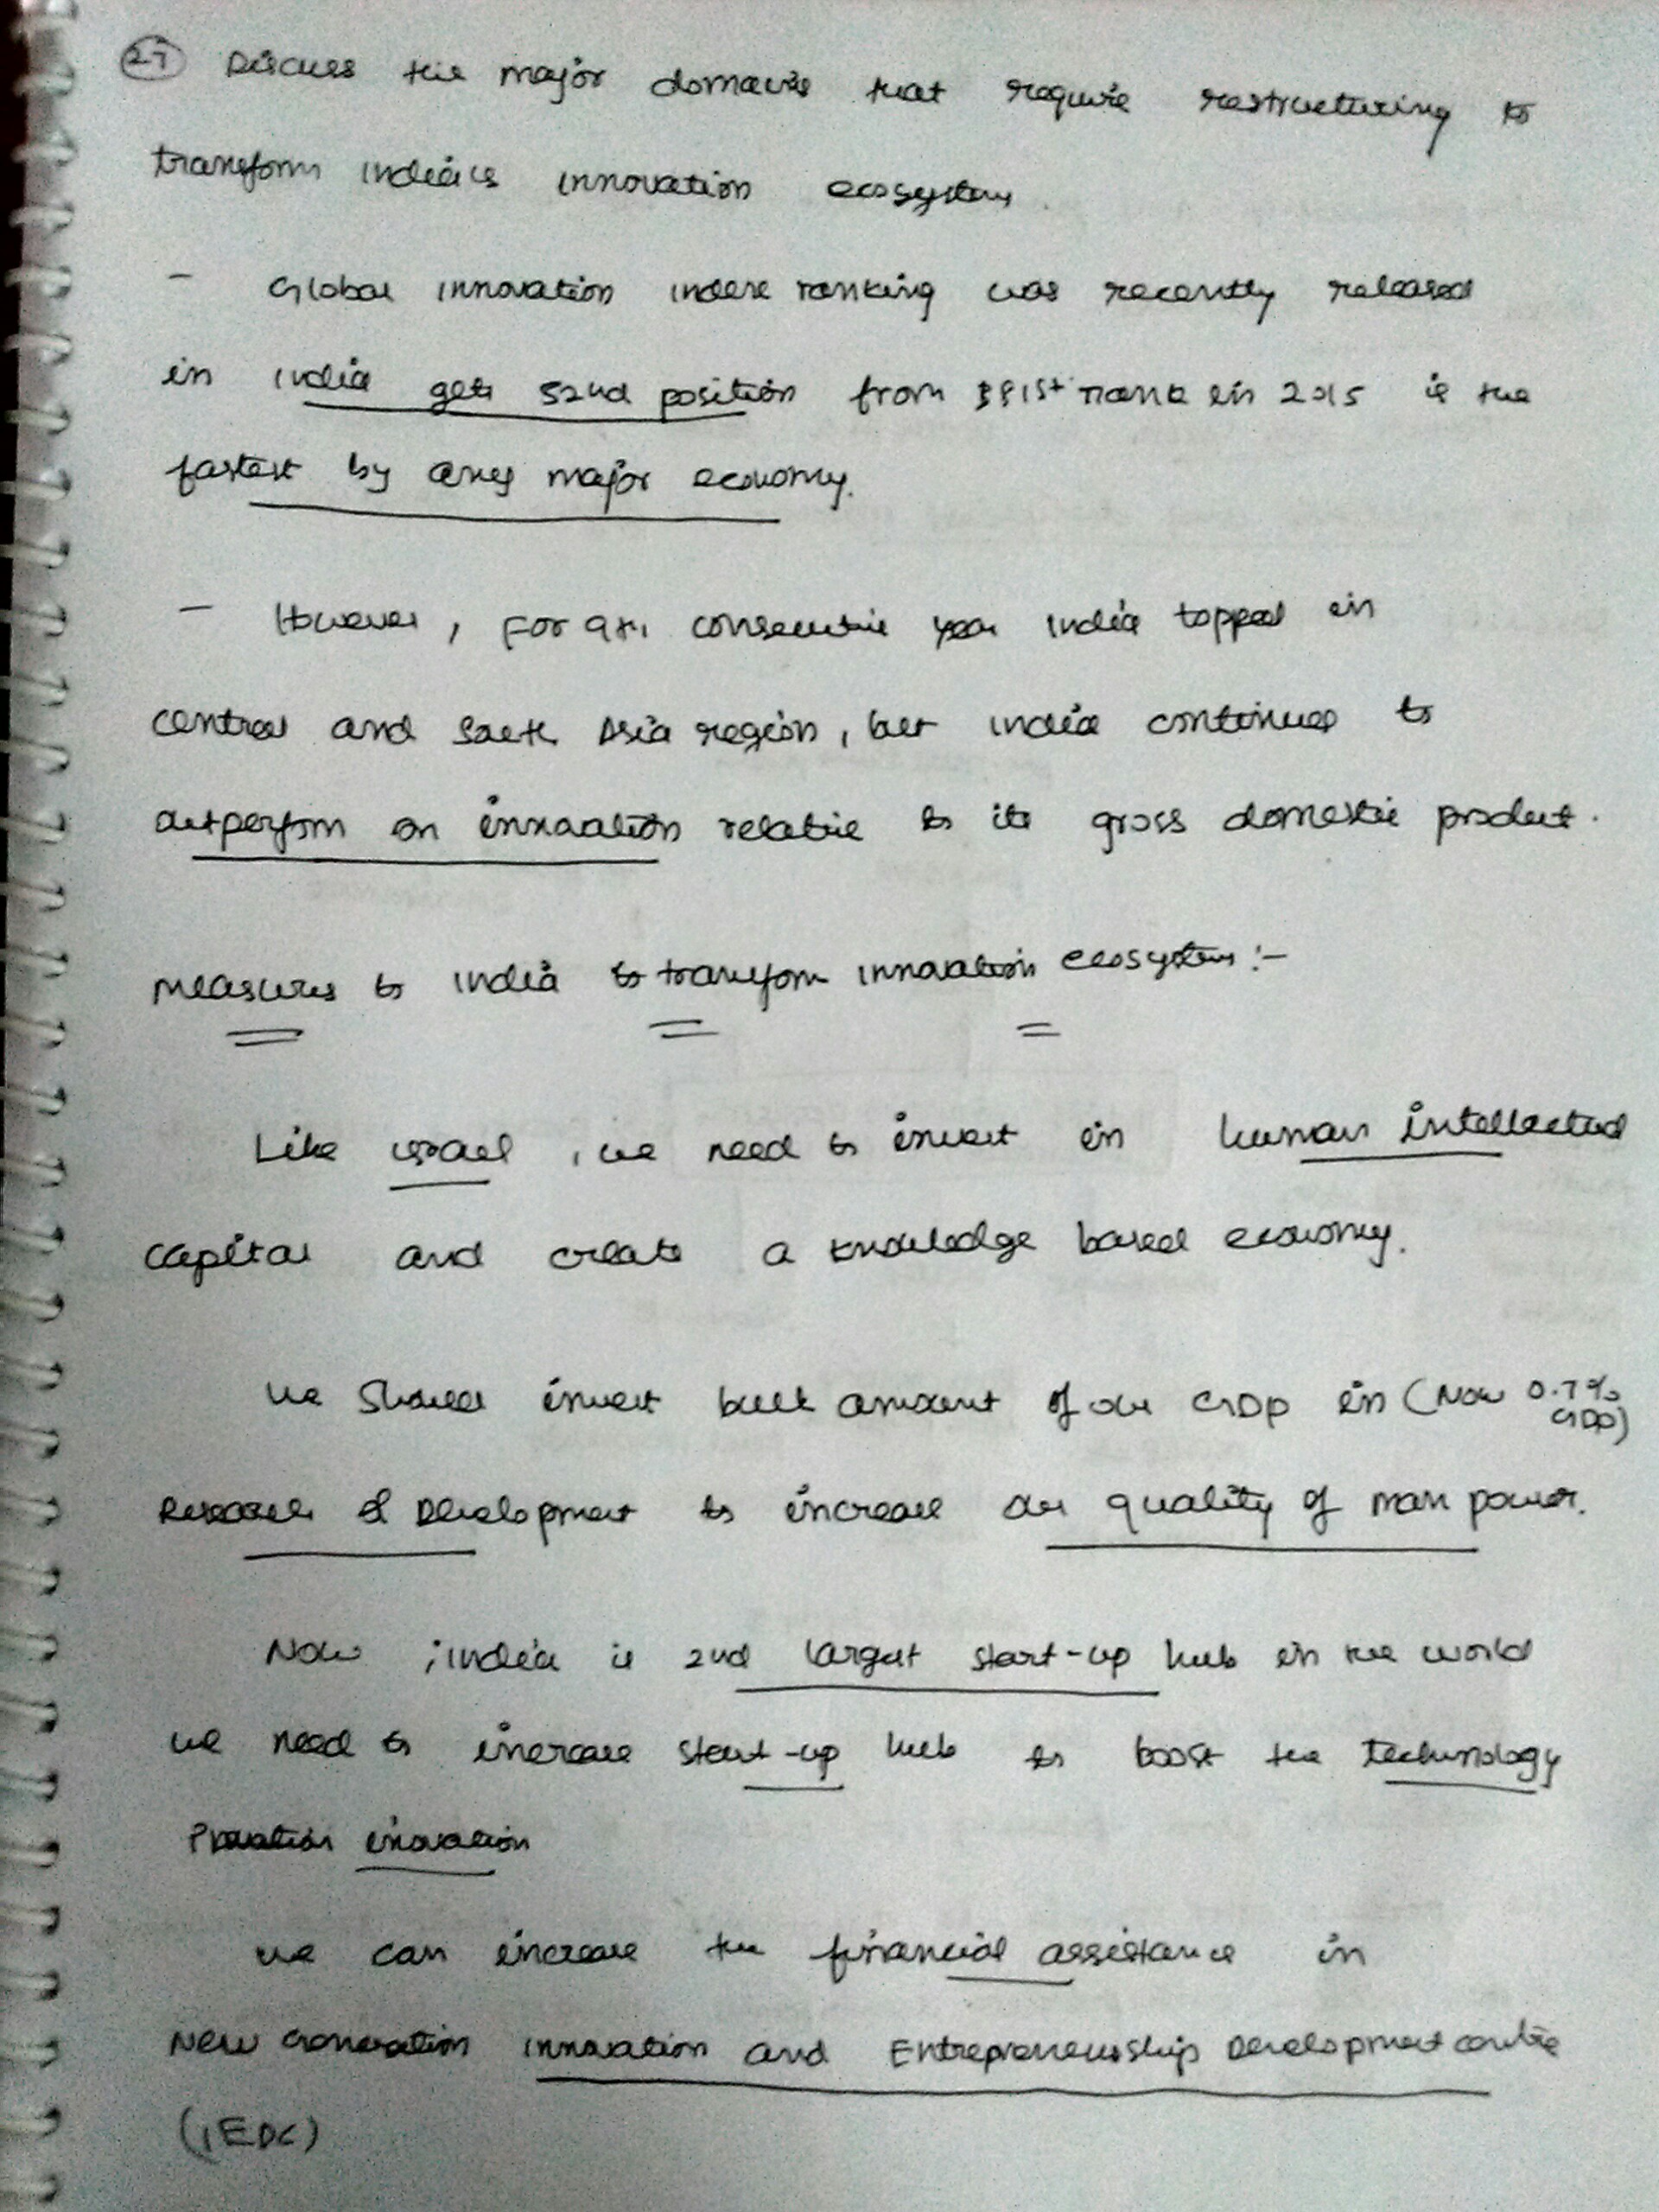 27 Discuss the major domains that require restructuring to
transform India's innovation ecosystem.
- Global innovation index ranking was recently released
in India gets 52nd position from 81st rank in 2015 is the
fastest by any major economy.
- However, For 9th consecutive year India topped in
central and South Asia region, but India continues to
outperform on innovation relative to its gross domestic product.
Measures to India to transform innovation ecosystem :-
Like Israel, we need to invest in human intellectual
capital and create a knowledge based economy.
We should invest bulk amount of our GDP in (Now 0.7%
GDP)
Research & Development to increase our quality of man power.
Now, India is 2nd largest start-up hub in the world
we need to increase start-up hub to boost the technology
inovation
we can increase the financial assistance in
New Generation innovation and Entrepreneurship Development centre
(IEDC)